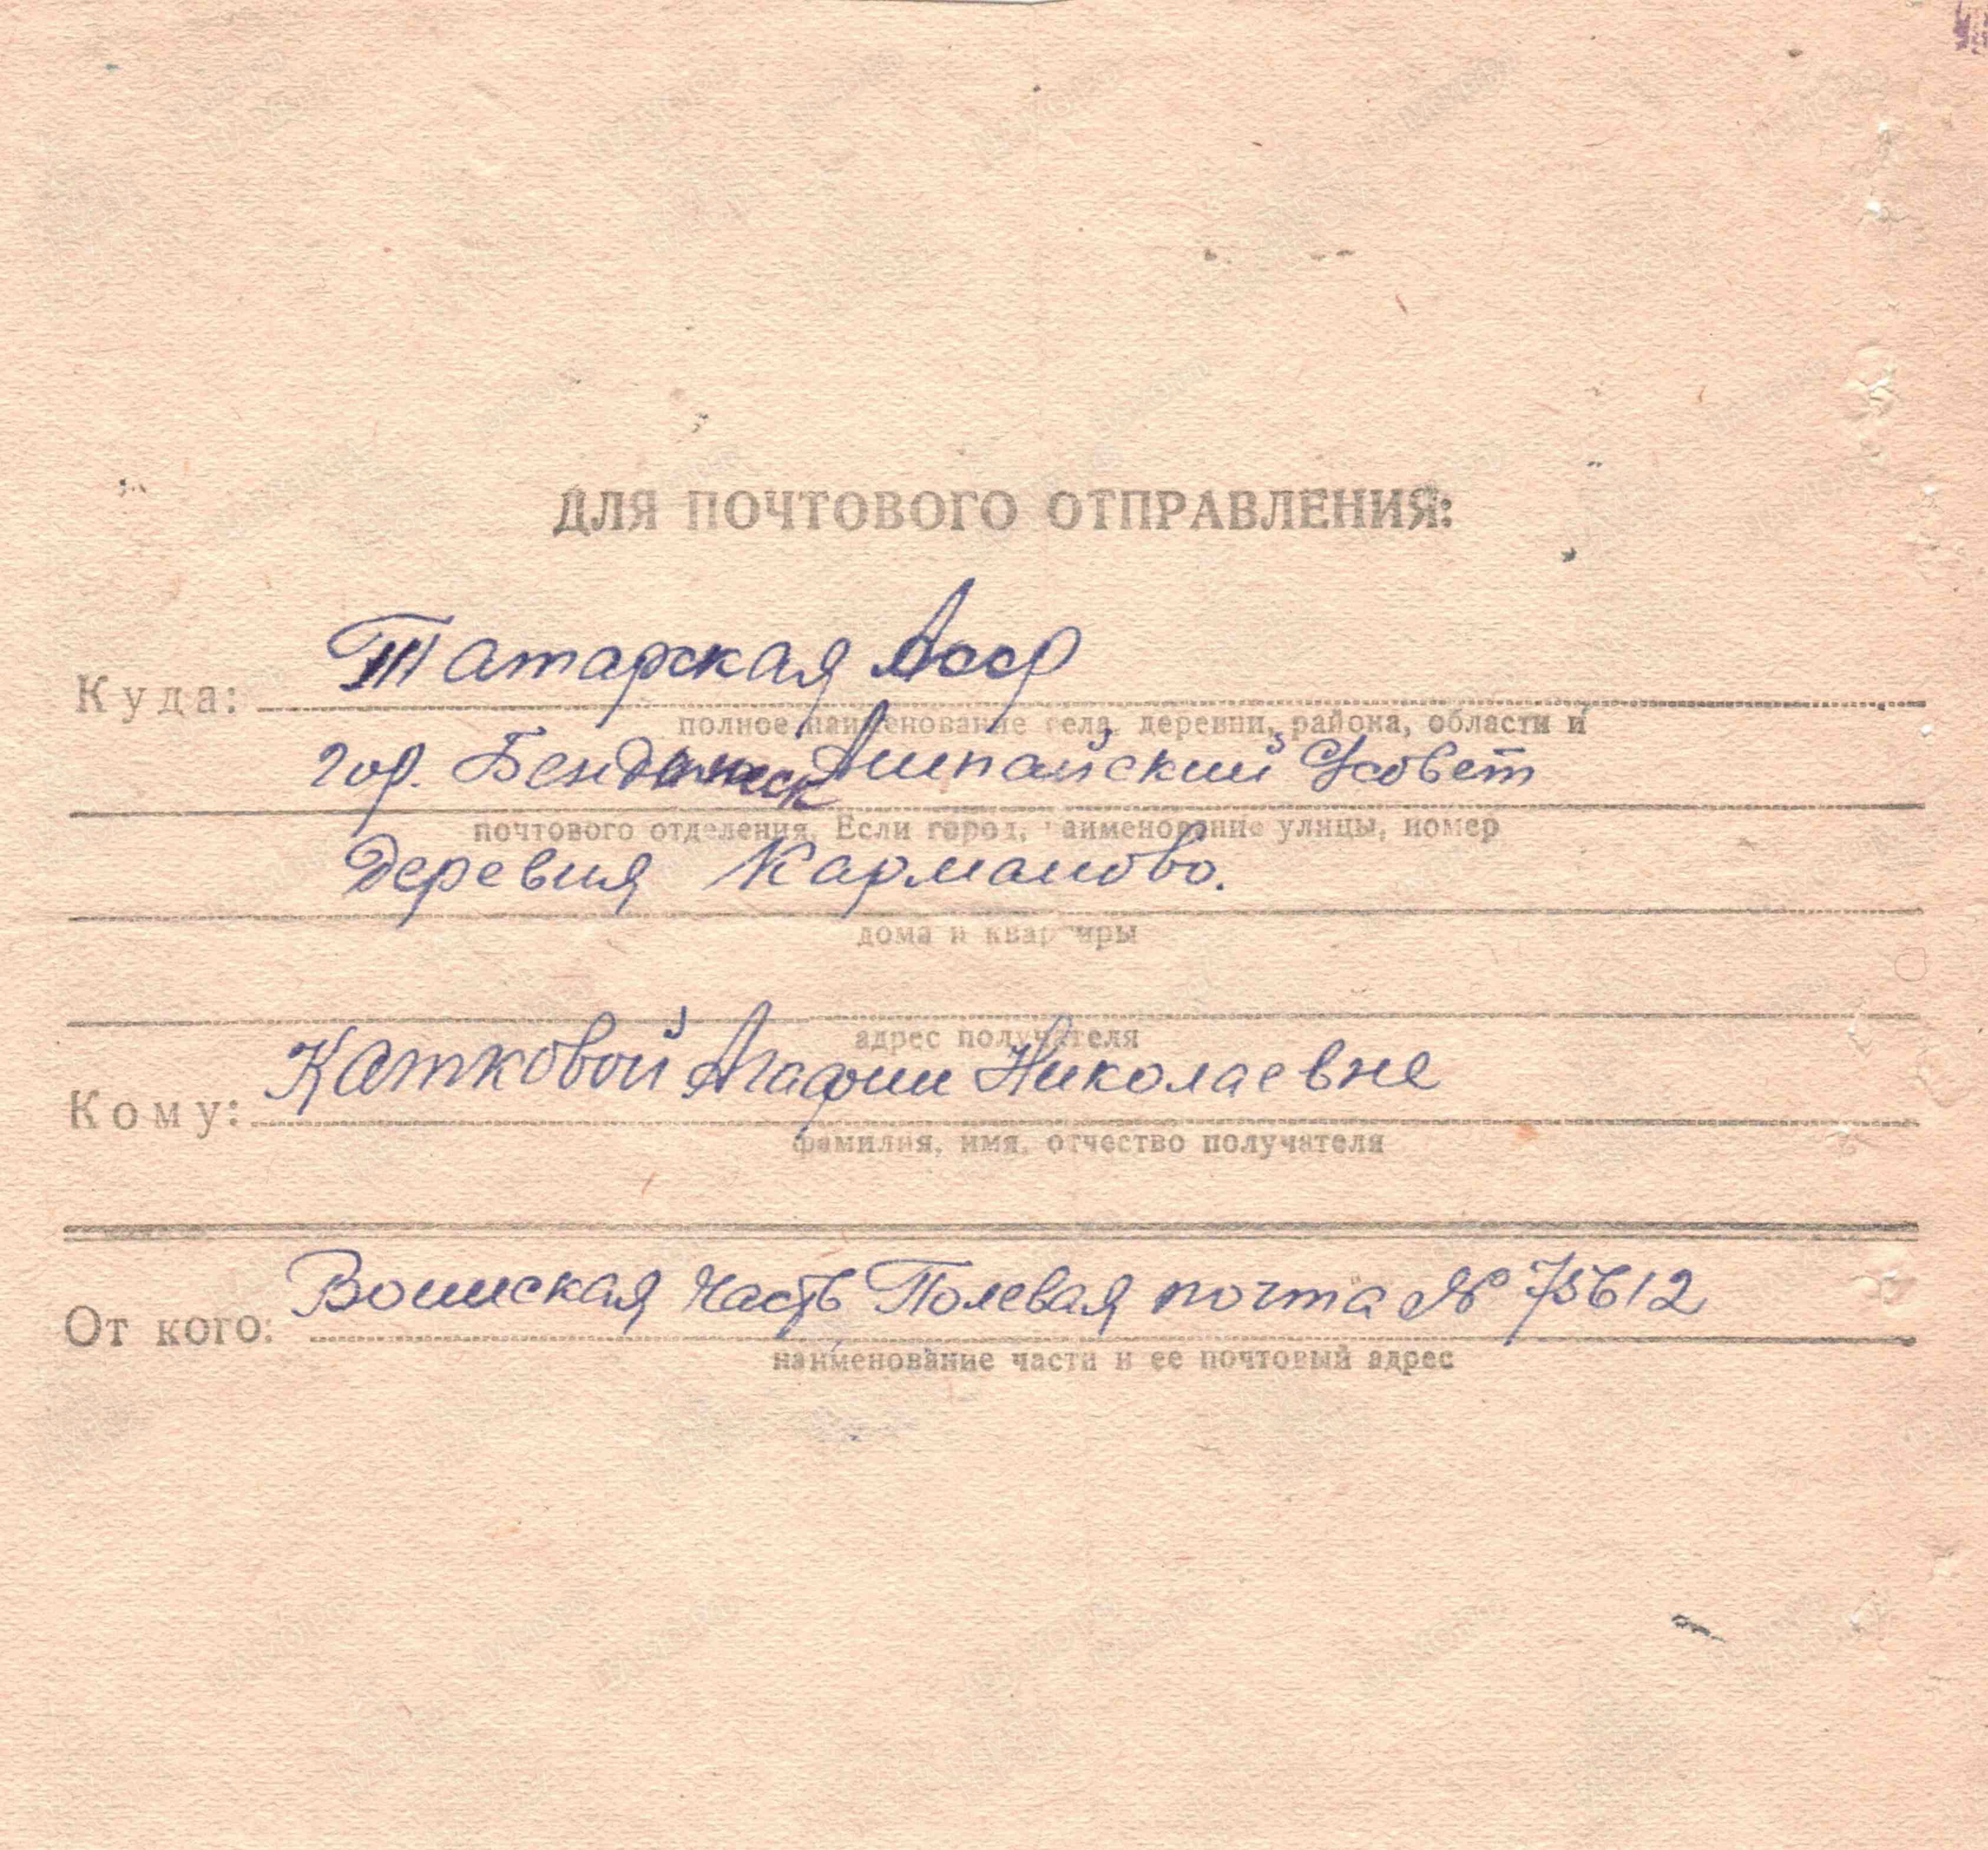 ДЛЯ ПОЧТОВОГО ОТПРАВЛЕНИЯ:
Куда: Татарская Асср
полное наименование села, деревни, района, области и
гор. Липайский Усовет
почтового отделения, Если город, наименование улицы, номер
деревня Карманово.
дома и квартиры
адрес получателя
Кому: Катковой Агафии Николаевне
фамилия, имя, отчество получателя
От кого: Воинская часть Полевая почта № 75612
наименование части и ее почтовый адрес